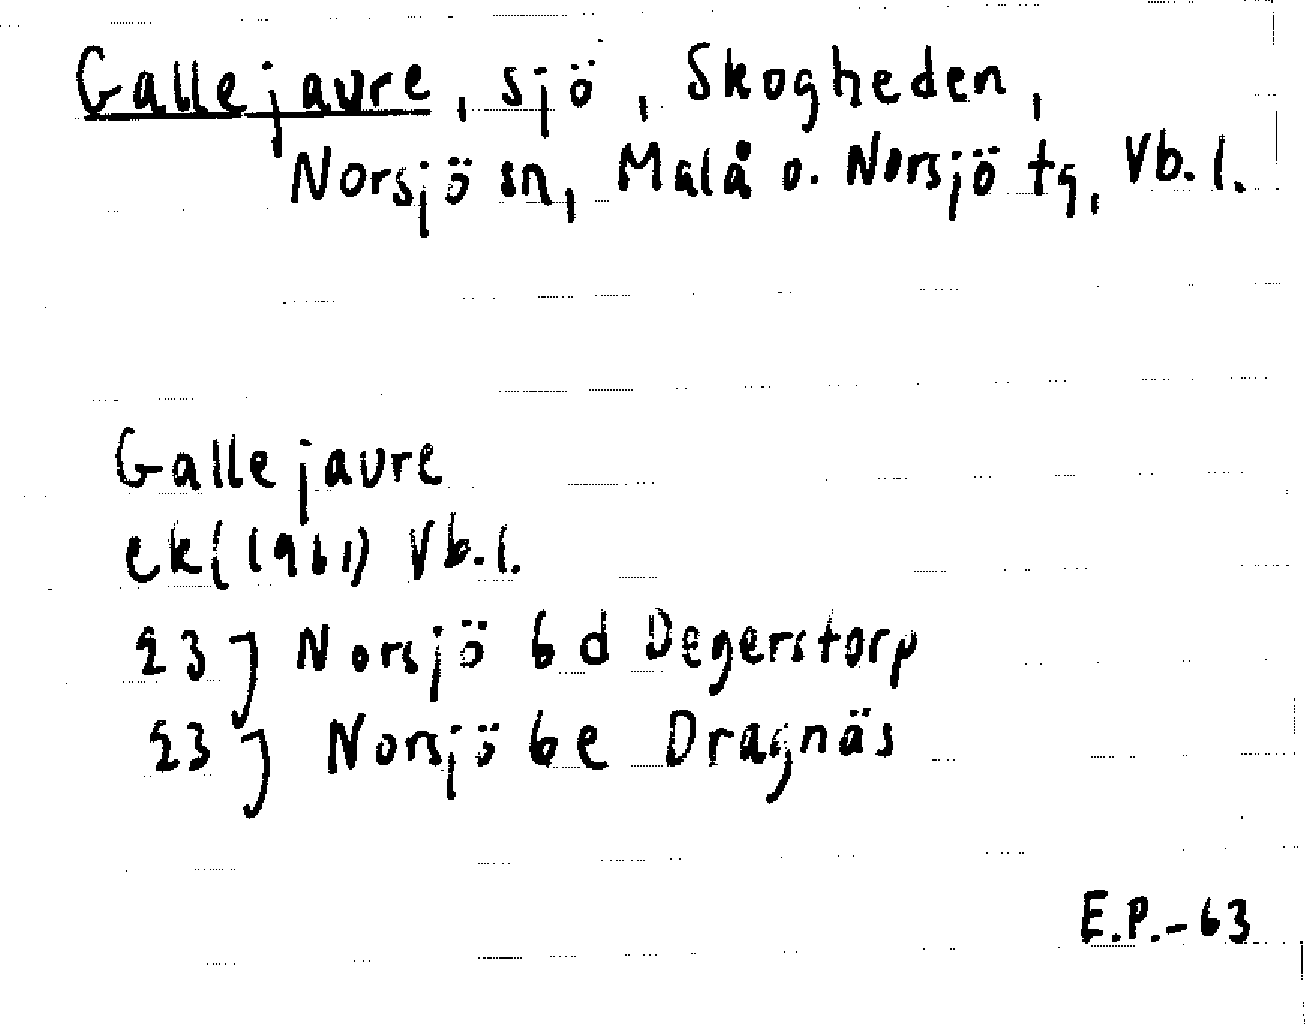 Gallejaure, sjö, Skogheden,
Norsjö sn, Malå o. Norsjö tg, Vb. l.
Gallejaure
ek (1961) Vb. l.
23 J Norsjö 6 d Degerstorp
23 J Norsjö 6 e Dragnäs
E.P.-63